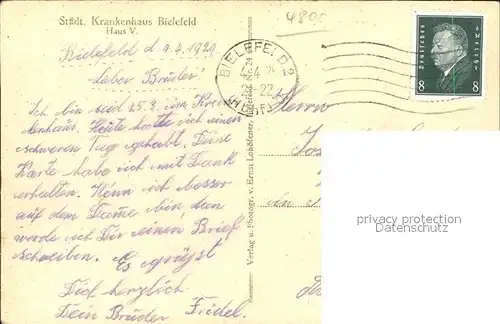 Städt. Krankenhaus Bielefeld
Haus V.
4800
Bielefeld d. 4.4.1929
Lieber Bruder!
Ich bin seit 25.3. im Kran-
kenhaus. Heute hatte ich einen
schweren Tag gehabt. Deine
Karte habe ich mit Dank
erhalten. Wenn ich besser
auf dem Damme bin, dann
werde ich Dir einen Brief
schreiben. Es grüsst
Dich herzlich
Dein Bruder Fridel.
Verlag u. Photogr. v. Ernst Lohöfener, Bielefeld
BIELEFELD 2
Deutsches Reich
8 8
Herrn
privacy protection
Datenschutz